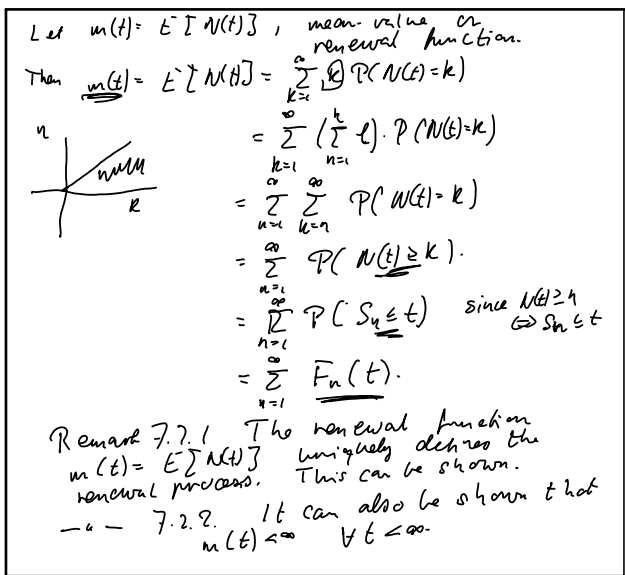 Let m(t) = E[N(t)], mean-value or
renewal function.
Then m(t) = E[N(t)] = ∑_{k=1}^{∞} k P(N(t)=k)
= ∑_{k=1}^{∞} (∑_{n=1}^{k} 1) · P(N(t)=k)
n
k
= ∑_{n=1}^{∞} ∑_{k=n}^{∞} P(N(t)=k)
= ∑_{n=1}^{∞} P(N(t) ≥ k).
= ∑_{n=1}^{∞} P(S_n ≤ t) since N(t) ≥ n
⇔ S_n ≤ t
= ∑_{n=1}^{∞} F_n(t).
Remark 7.2.1 The renewal function
m(t) = E[N(t)] uniquely defines the
renewal process. This can be shown.
—"— 7.2.2. It can also be shown that
m(t) < ∞ ∀ t < ∞.